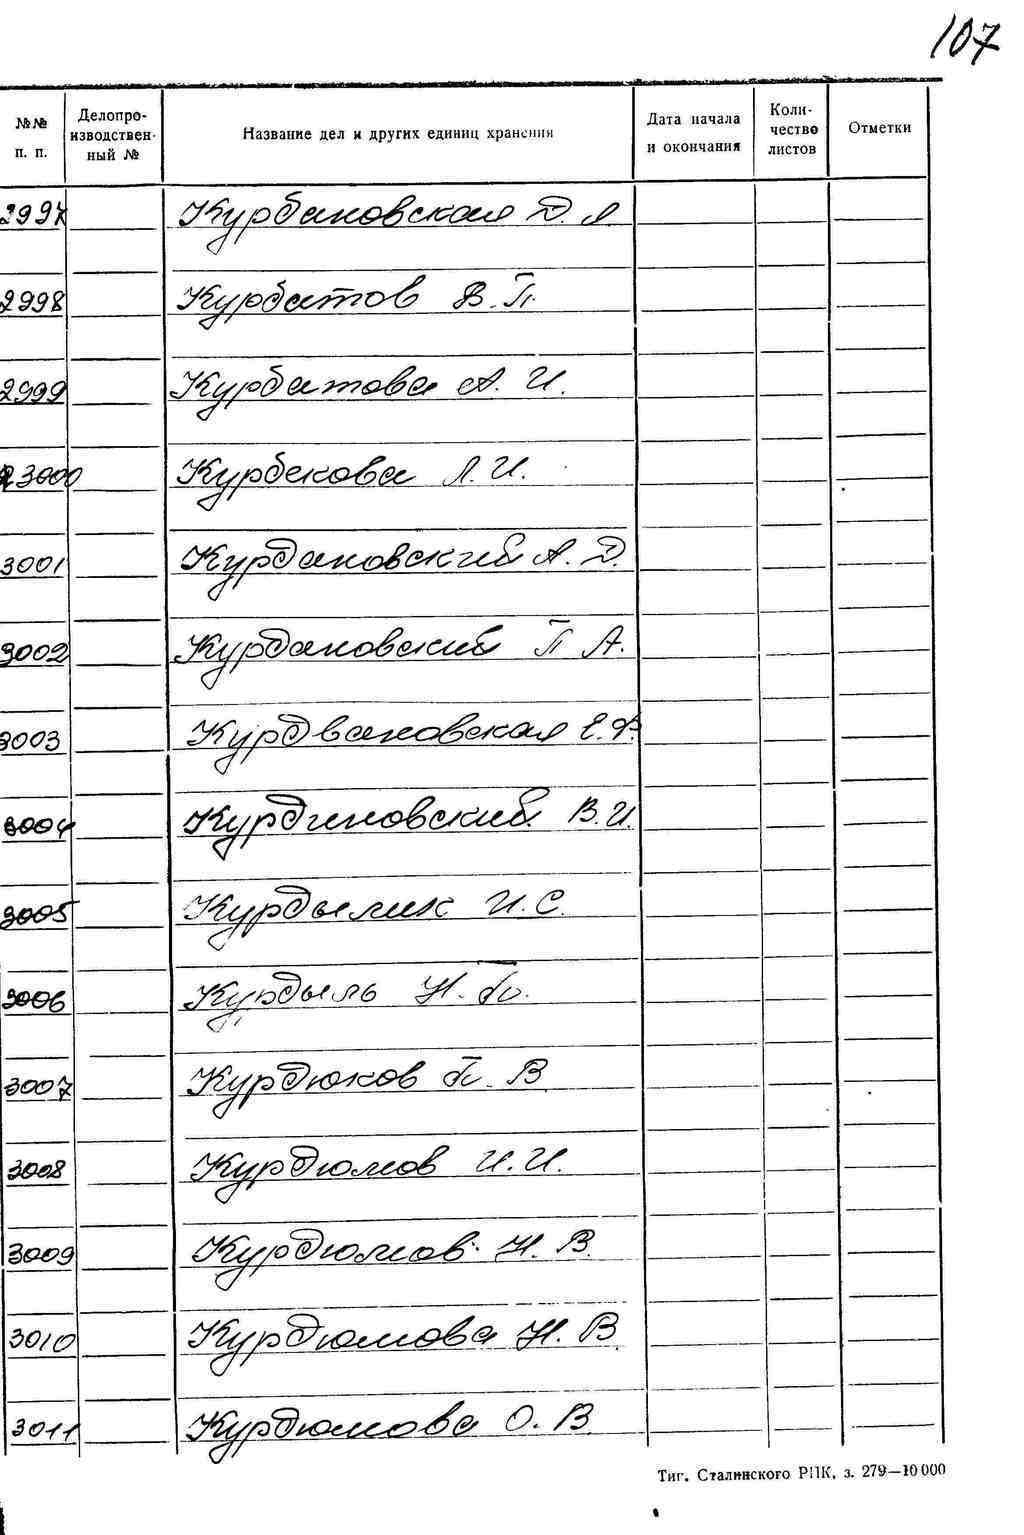 107
№№ п. п. Делопроизводственный № Название дел и других единиц хранения Дата начала и окончания Количество листов Отметки
2997 Курбановская Д. Я
2998 Курбатов В. П.
2999 Курбатова А. И.
3000 Курбекова Л. И.
3001 Курдановский А. Д.
3002 Курдановский П А.
3003 Курдвановская Е. Ф.
3004 Курдиновский В. И.
3005 Курдылик И. С.
3006 Курдыль Н.
3007 Курдюков П. В
3008 Курдюмов И. И.
3009 Курдюмов Н. В.
3010 Курдюмова Н. В
3011 Курдюмова О. В.
Тип. Сталинского РПК, з. 279—10 000